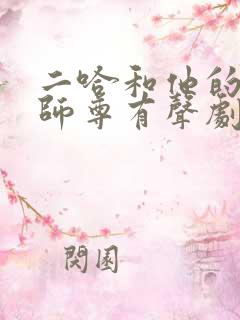 二哈和他的
師尊有聲劇
閱園